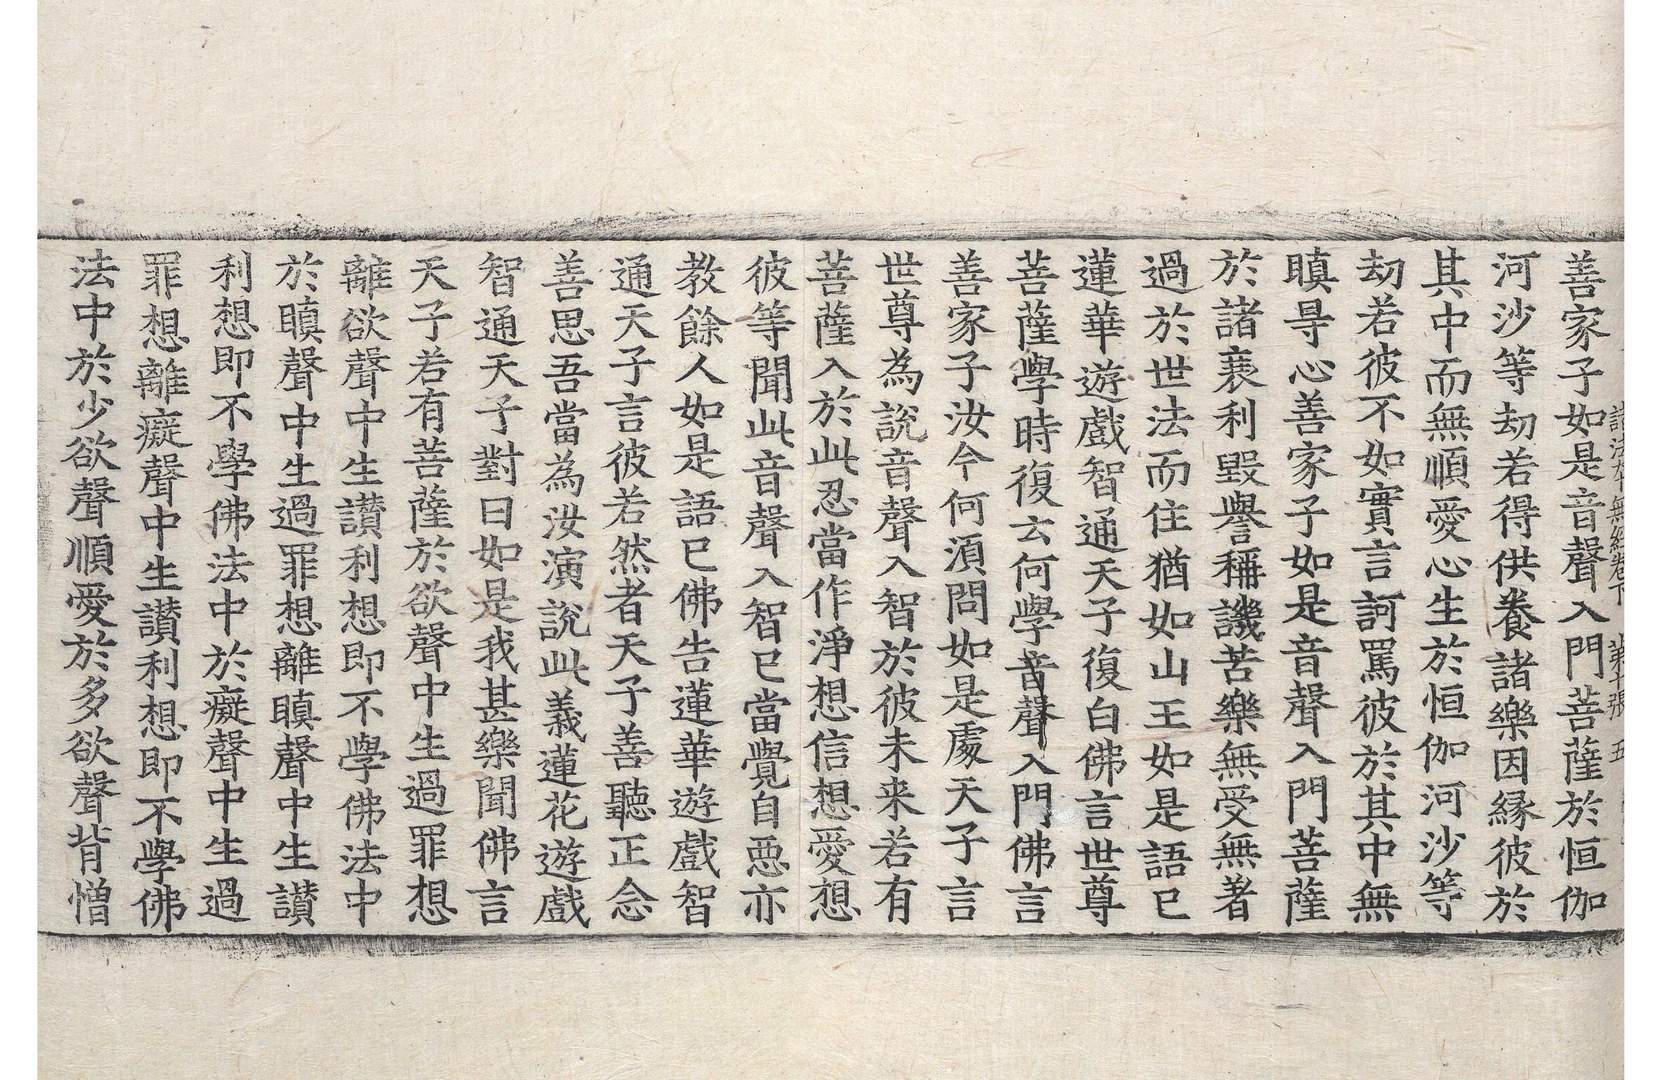 諸法本無經卷下 第十張 五
善家子如是音聲入門菩薩於恒伽
河沙等劫若得供養諸樂因緣彼於
其中而無順愛心生於恒伽河沙等
劫若彼不如實言訶罵彼於其中無
瞋㝵心善家子如是音聲入門菩薩
於諸衰利毀譽稱譏苦樂無受無著
過於世法而住猶如山王如是語已
蓮華遊戲智通天子復白佛言世尊
菩薩學時復云何學音聲入門佛言
善家子汝今何湏問如是處天子言
世尊為說音聲入智於彼未来若有
菩薩入於此忍當作淨想信想愛想
彼等聞此音聲入智已當覺自惡亦
教餘人如是語已佛告蓮華遊戲智
通天子言彼若然者天子善聽正念
善思吾當為汝演說此義蓮花遊戲
智通天子對曰如是我甚樂聞佛言
天子若有菩薩於欲聲中生過罪想
離欲聲中生讃利想即不學佛法中
於瞋聲中生過罪想離瞋聲中生讃
利想即不學佛法中於癡聲中生過
罪想離癡聲中生讃利想即不學佛
法中於少欲聲順愛於多欲聲背憎